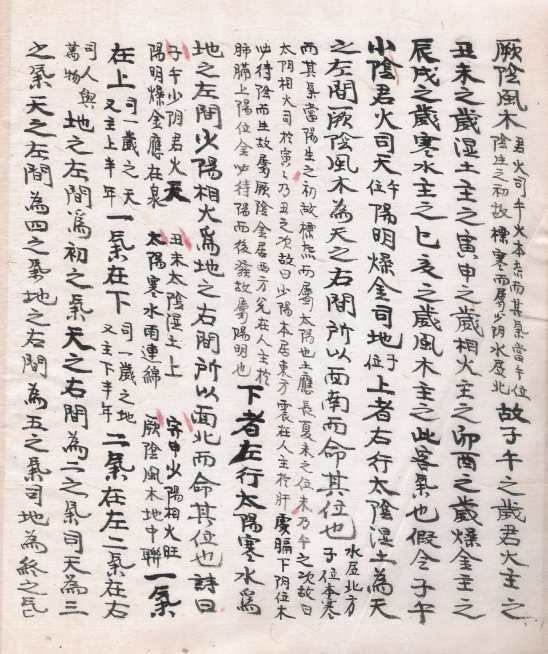 厥陰風木君火司午火本热而其氣當午位陰生之初故標寒而屬少阴水居北故子午之歲君火主之
丑未之歲湿土主之寅申之歲相火主之卯酉之歲燥金主之
辰戌之歲寒水主之巳亥之歲風木主之此客氣也假令子午
少陰君火司天午位陽明燥金司地子位上者右行太陰湿土為天
之左間厥陰風木為天之右間所以面南而命其位也水居北方子位本寒
而其氣當陽生之初故標热而屬太陽也土應長夏未之位未乃午之次故曰
太阴相火司於寅々乃丑之次故曰少陽木居東方震在人主於肝處膈下阴位木
必待阴而生故屬厥陰金居西方兑在人主於
肺膈上陽位金必待陽而後發故屬陽明也下者左行太陽寒水為
地之左間少陽相火為地之右間所以面北而命其位也詩曰
子午少阴君火天陽明燥金應在泉丑未太陰湿土上太陽寒水雨連綿寅申少陽相火旺厥陰風木地中聯一氣
在上司一歲之天又主上半年一氣在下司一歲之地又主下半年二氣在左二氣在右
司人與萬物地之左間為初之氣天之右間為二之氣司天為三
之氣天之左間為四之氣地之右間為五之氣司地為終之氣